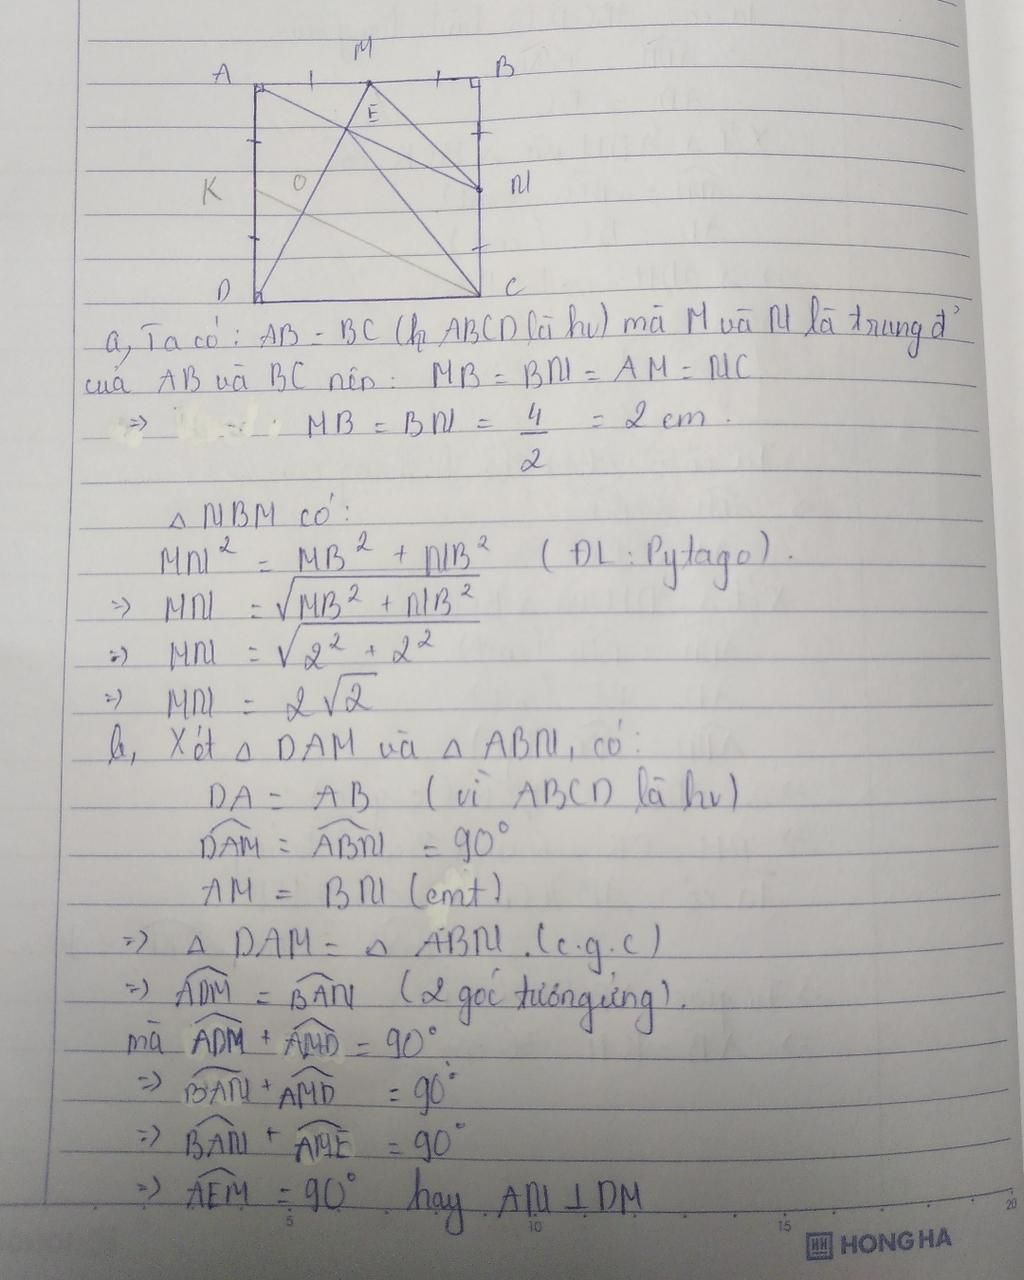 M
A B
E
K O N
D C
a, Ta có: AB = BC (vì ABCD là hv) mà M và N là trung đ'
của AB và BC nên: MB = BN = AM = NC
=> MB = BN = 4/2 = 2 cm.
△ NBM có:
MN² = MB² + NB² (ĐL: Pytago).
=> MN = √(MB² + NB²)
=> MN = √(2² + 2²)
=> MN = 2√2
b, Xét △ DAM và △ ABN, có:
DA = AB (vì ABCD là hv)
DAM̂ = ABN̂ = 90°
AM = BN (cmt)
=> △ DAM = △ ABN.(c.g.c)
=> ADM̂ = BAN̂ (2 góc tương ứng).
mà ADM̂ + AMD̂ = 90°
=> BAN̂ + AMD̂ = 90°
=> BAN̂ + AMÊ = 90°
=> AEM̂ = 90° hay AN ⊥ DM
5 10 15 20
HH HONG HA